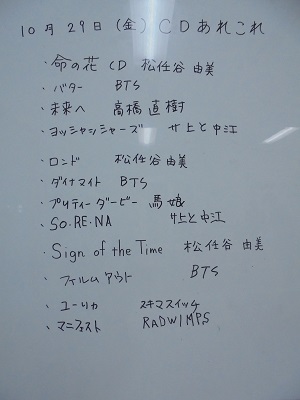 10月29日(金)CDあれこれ
・命の花 CD 松任谷 由美
・バター BTS
・未来へ 高橋 直樹
・ヨッシャシャシャーズ サ上と中江
・ロンド 松任谷 由美
・ダイナマイト BTS
・プリティーダービー 馬娘
・SO.RE.NA サ上と中江
・Sign of the Time 松任谷 由美
・フィルムアウト BTS
・ユーリカ スキマスイッチ
・マニフェスト RADWIMPS